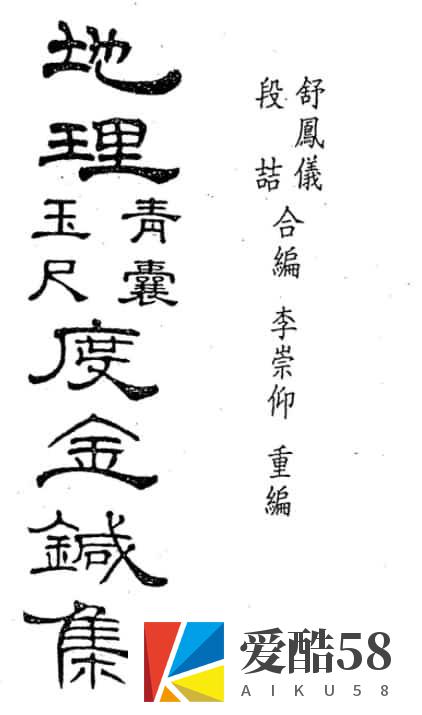 舒鳳儀
段喆
合編 李崇仰 重編
地理
青囊
玉尺
度金鍼集
爱酷58
AIKU58